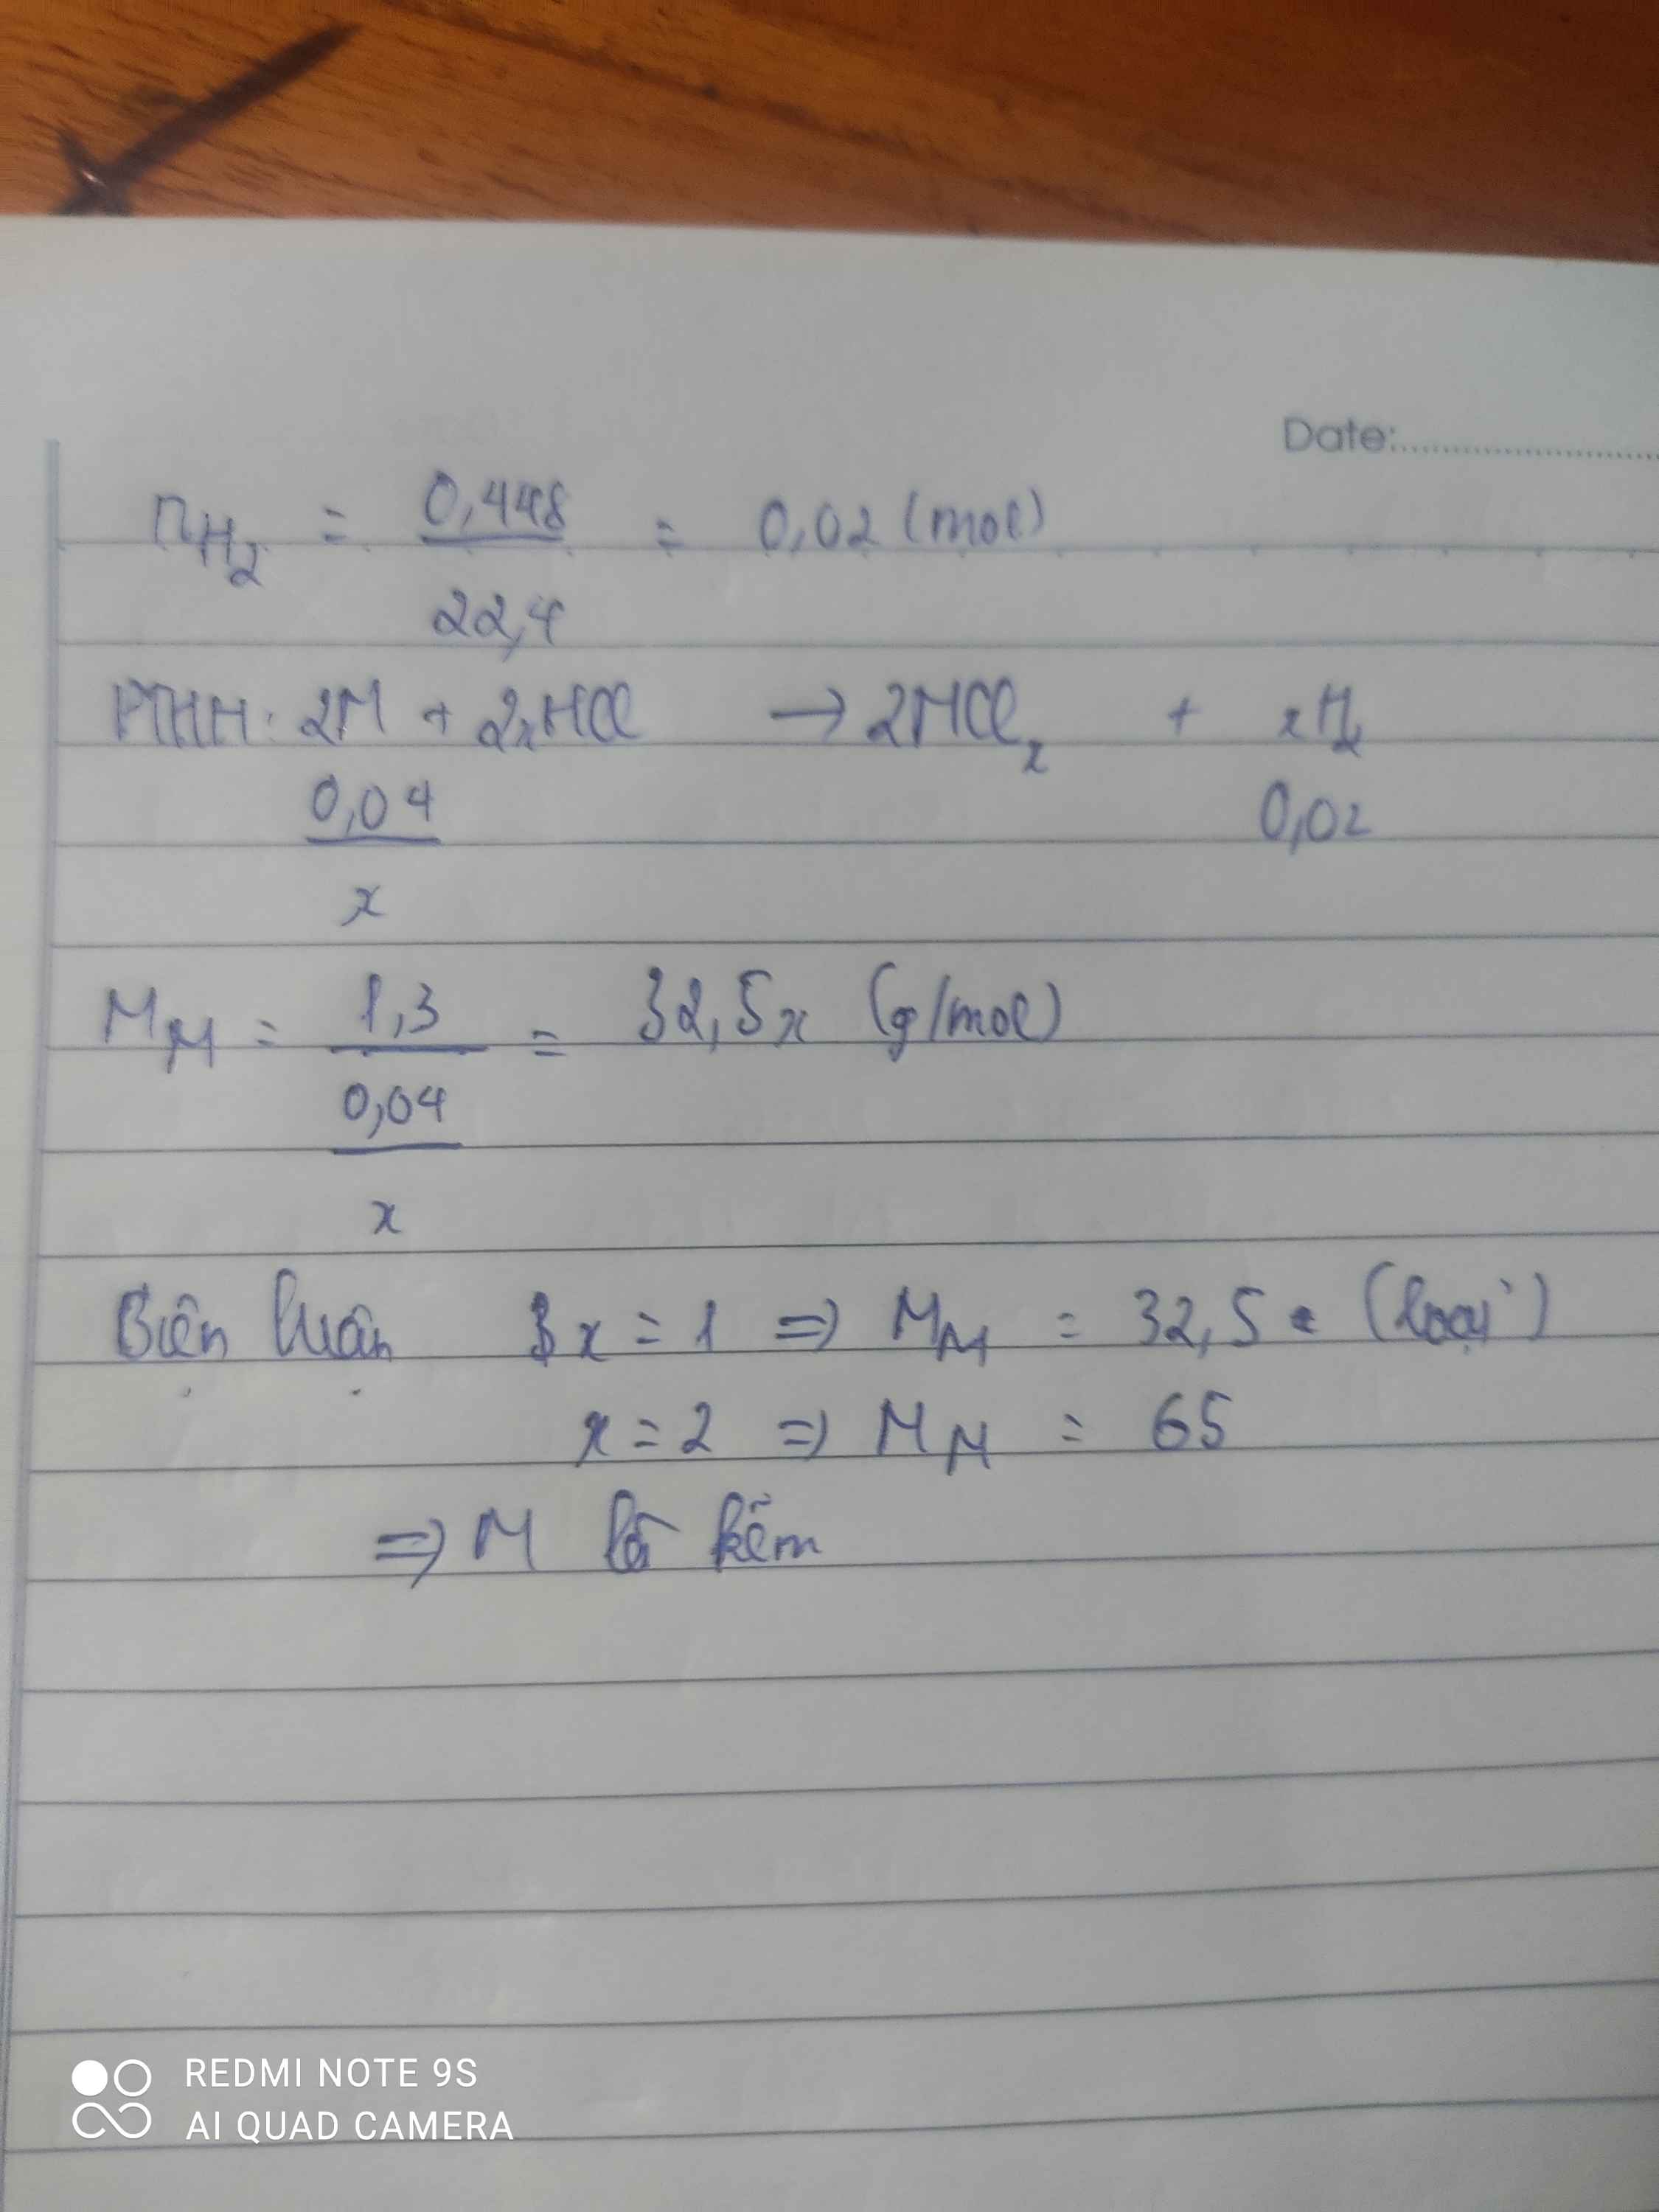 Date:
nH₂ = 0,448 / 22,4 = 0,02 (mol)
PTHH: 2M + 2xHCl → 2MClₓ + xH₂
0,04 / x 0,02
M_M = 1,3 / (0,04 / x) = 32,5x (g/mol)
Biện luận x = 1 => M_M = 32,5 (loại)
x = 2 => M_M = 65
=> M là kẽm
REDMI NOTE 9S
AI QUAD CAMERA